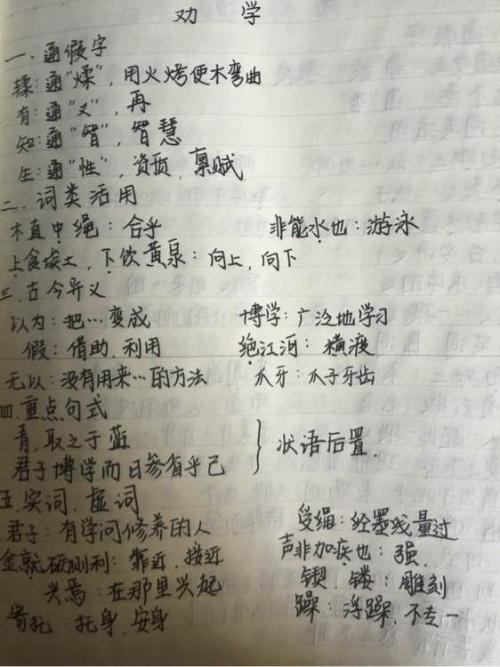 劝学
一、通假字
鍒：通“煣”，用火烤使木弯曲
有：通“又”，再
知：通“智”，智慧
生：通“性”，资质，禀赋
二、词类活用
木直中绳：合乎 非能水也：游泳
上食埃土，下饮黄泉：向上，向下
三、古今异义
以为：把…变成 博学：广泛地学习
假：借助、利用 绝江河：横渡
无以：没有用来…的方法 爪牙：爪子牙齿
四.重点句式
青，取之于蓝
君子博学而日参省乎己 } 状语后置.
五.实词、虚词
君子：有学问修养的人 受绳：经墨线量过
金就砺则利：靠近，接近 声非加疾也：强.
兴焉：在那里兴起 锲，镂：雕刻
寄托：托身、安身 躁：浮躁，不专一